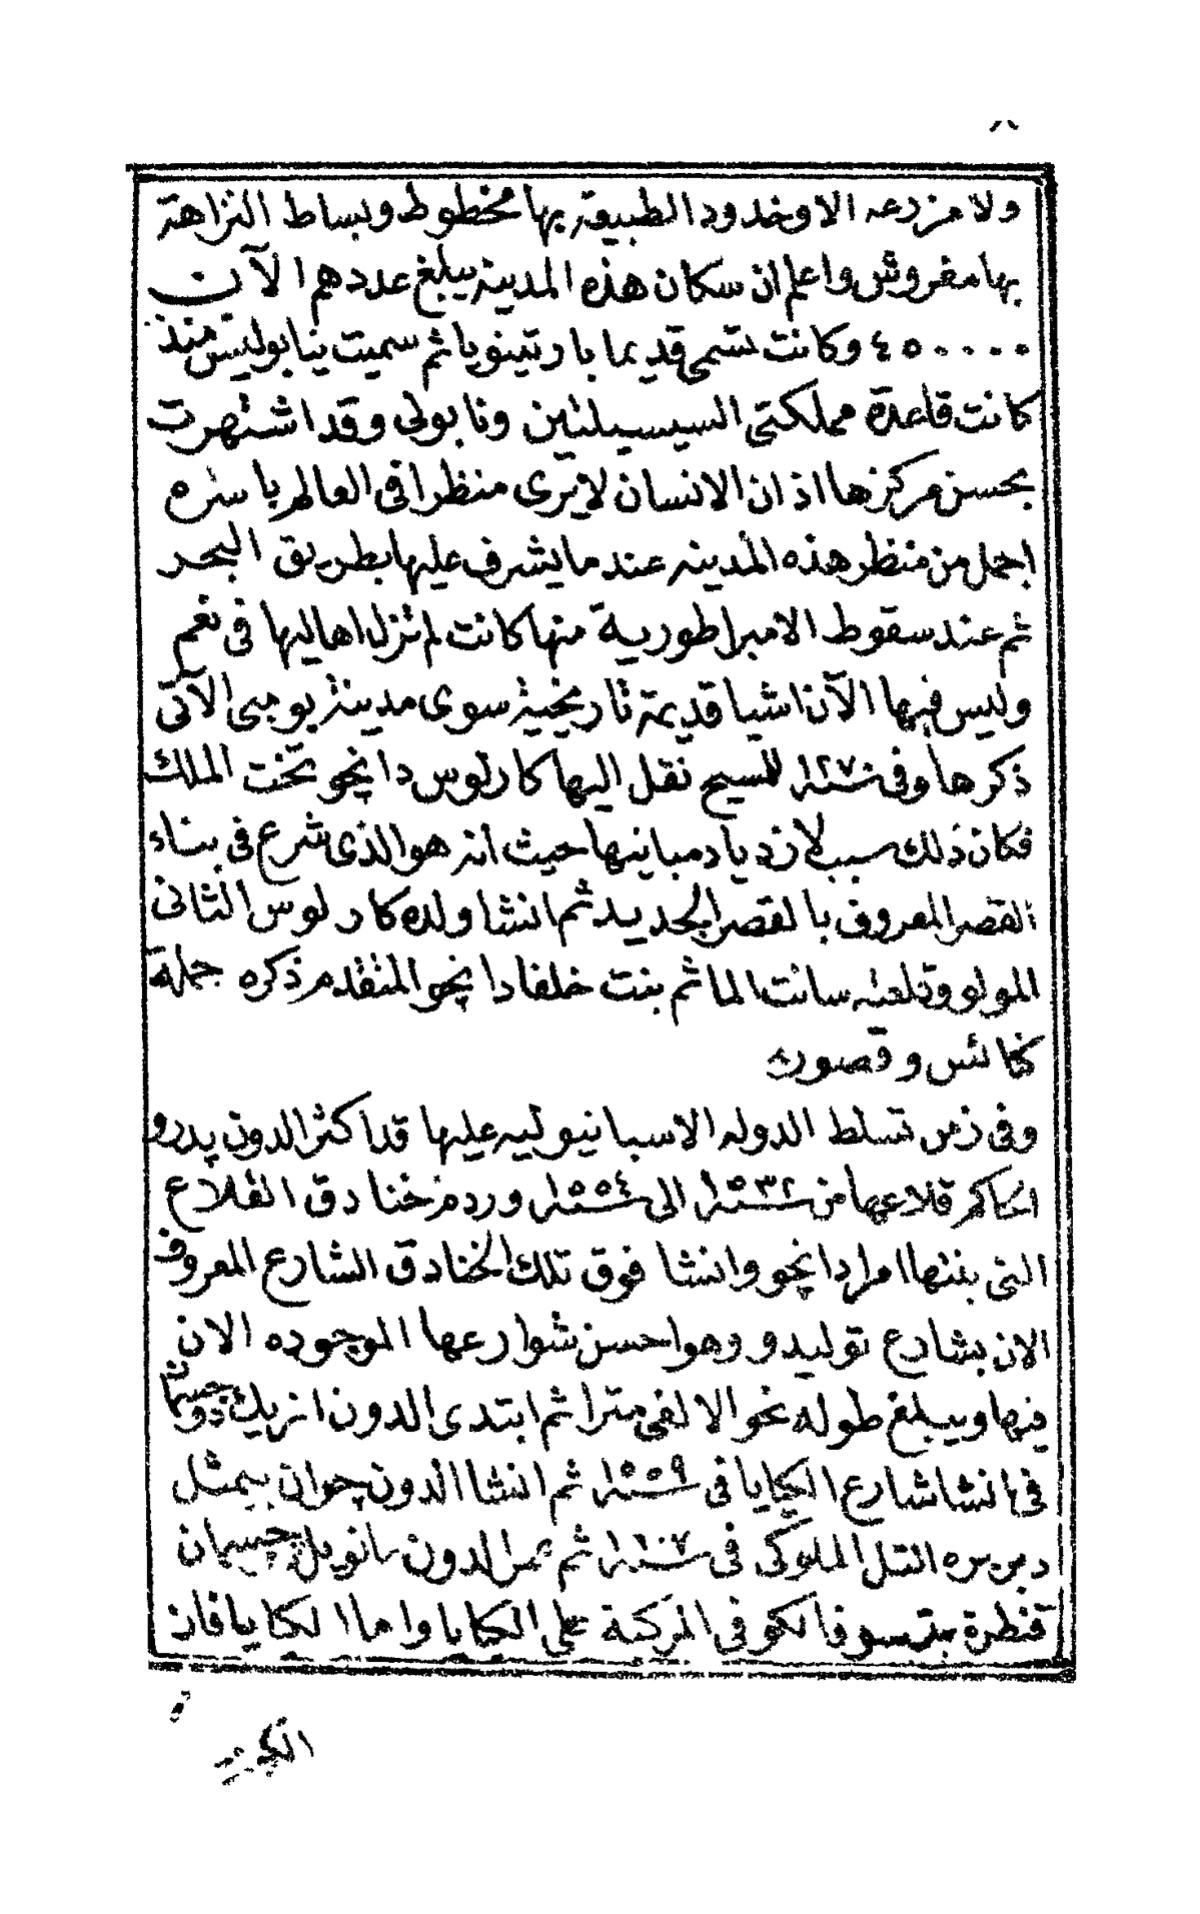 ٨
ولا مزرعه الا وخدود الطبيعة بها مخطوط وبساط النزاهة
بها مفروش واعلم ان سكان هذه المدينة يبلغ عددهم الآن
٤٥٠٠٠٠ وكانت تسمى قديما بارتينوبا ثم سميت بنابوليس منذ
كانت قاعدة مملكتي السيسيلتين ونابولي وقد اشتهرت
بحسن مركزها اذ ان الانسان لا يرى منظرا في العالم باسره
اجمل من منظر هذه المدينه عند ما يشرف عليها بطريق البحر
ثم عند سقوط الامبراطورية منها كانت لم تزل اهاليها في نعم
وليس فيها الآن اشيا قديمة تاريخية سوى مدينة بومبي الآتى
ذكرها وفي سنة ١٢٧٠ للمسيح نقل اليها كارلوس دانچو تخت الملك
فكان ذلك سبب لازدياد مبانيها حيث انه هو الذى شرع في بناء
القصر المعروف بالقصر الجديد ثم انشا ولده كارلوس الثانى
المولو وقلعته سانت الما ثم بنت خلفا دانچو المتقدم ذكره جملة
كنائس وقصوره
وفى زمن تسلط الدوله الاسبانيوليه عليها قد اكثر الدون پدرو
الحاكم قلاعها من سنة ١٥٣٢ الى سنة ١٥٥٤ وردم خنادق القلاع
التى بنتها امرا دانچو وانشا فوق تلك الخنادق الشارع المعروف
الان بشارع توليدو وهو احسن شوارعها الموجوده الان
فيها ويبلغ طوله نحو الالفى مترا ثم ابتدى الدون انريك دو جسمان
فى انشا شارع الكيايا فى سنة ١٥٥٩ ثم انشا الدون چوان بيمثل
التل الملوكى فى سنة ١٦٠٧ ثم عمر الدون مانويل چسمان
قنطرة فى المركبة على الكيايا واما الكيايا فان